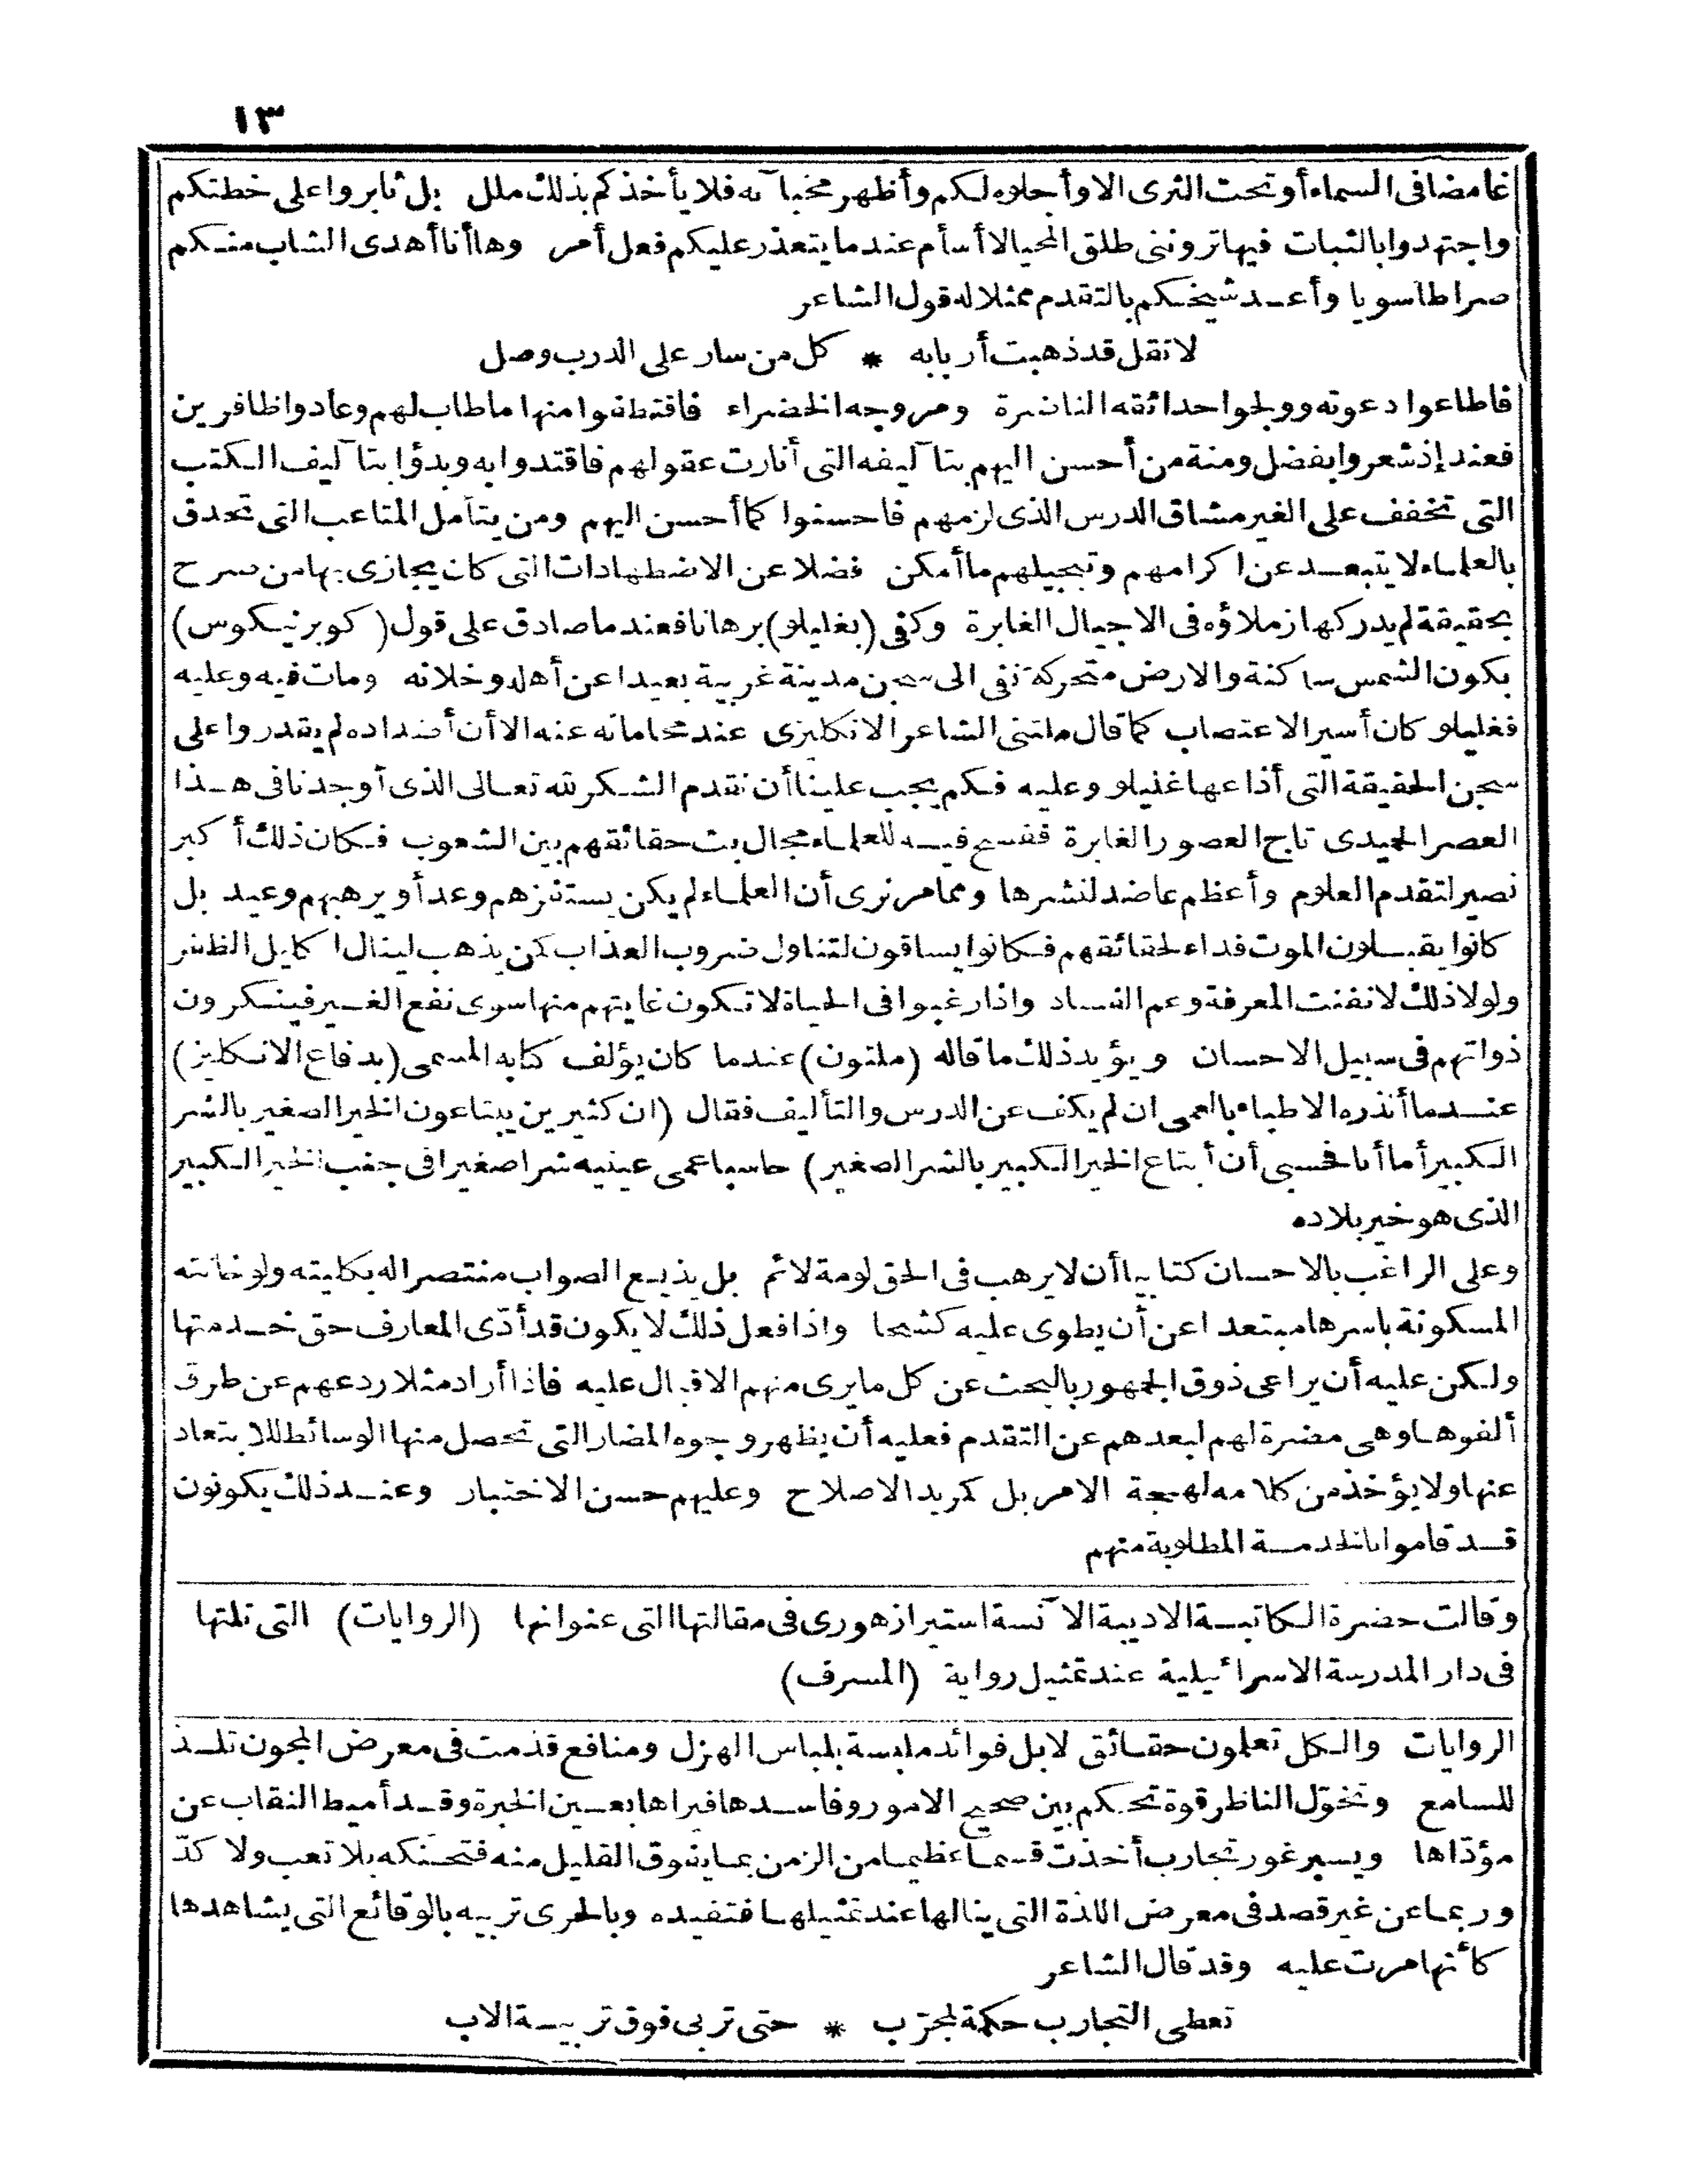 ١٣
غامضا فى السماء أو تحت الثرى الا وأجلاوه لكم وأظهر مخبا آته فلا يأخذكم بذلك ملل بل ثابروا على خطتكم
واجتهدوا بالثبات فيها ترونى طلق المحيا لا أسأم عندما يتعذر عليكم فعل أمر وها أنا أهدى الشاب منكم
صراطا سويا وأعد شيخكم بالتقدم ممثلا له قول الشاعر
لا تقل قد ذهبت أربابه * كل من سار على الدرب وصل
فاطاعوا دعوته وولجوا حدائقه الناضرة ومروجه الخضراء فاقتطفوا منها ما طاب لهم وعادوا ظافرين
فعند إذ شعروا بفضل ومنة من أحسن اليهم بتآليفه التى أنارت عقولهم فاقتدوا به وبدؤا بتآليف الكتب
التى تخفف على الغير مشاق الدرس الذى لزمهم فاحسنوا كما أحسن اليهم ومن يتأمل المتاعب التى تحدق
بالعلماء لا يتبعد عن اكرامهم وتبجيلهم ما أمكن فضلا عن الاضطهادات التى كان يجازى بها من صرح
بحقيقة لم يدركها زملاؤه فى الاجيال الغابرة وكفى (بغليلو) برهانا فعندما صادق على قول (كوبرنيكوس)
بكون الشمس ساكنة والارض متحركة نفى الى سجن مدينة غريبة بعيدا عن أهله وخلانه ومات فيه وعليه
فغليلو كان أسير الاعتصاب كما قال ملتنى الشاعر الانكليزى عند محاماته عنه الا أن أضداده لم يقدروا على
سجن الحقيقة التى أذاعها غليلو وعليه فكم يجب علينا أن نقدم الشكر لله تعالى الذى أوجدنا فى هذا
العصر الحميدى تاج العصور الغابرة ففسح فيه للعلماء مجال بث حقائقهم بين الشعوب فكان ذلك أكبر
نصير لتقدم العلوم وأعظم عاضد لنشرها ومما مر نرى أن العلماء لم يكن يستفزهم وعد أو يرهبهم وعيد بل
كانوا يقبلون الموت فداء لحقائقهم فكانوا يساقون لتناول ضروب العذاب كمن يذهب لينال اكليل الظفر
ولولا ذلك لانفنت المعرفة وعم الفساد واذا رغبوا فى الحياة لا تكون غايتهم منها سوى نفع الغير فينكرون
ذواتهم فى سبيل الاحسان ويؤيد ذلك ما قاله (ملتون) عندما كان يؤلف كتابه المسمى (بدفاع الانكليز)
عندما أنذره الاطباء بالعمى ان لم يكف عن الدرس والتأليف فقال (ان كثيرين يبتاعون الخير الصغير بالشر
الكبير أما أنا فحسبى أن أبتاع الخير الكبير بالشر الصغير) حاسبا عمى عينيه شرا صغيرا فى جنب الخير الكبير
الذى هو خير بلاده
وعلى الراغب بالاحسان كتابيا أن لا يرهب فى الحق لومة لائم بل يذيع الصواب منتصرا له بكليته ولو خانته
المسكونة باسرها مبتعدا عن أن يطوى عليه كشحا واذا فعل ذلك لا يكون قد أدّى المعارف حق خدمتها
ولكن عليه أن يراعى ذوق الجمهور بالبحث عن كل ما يرى منهم الاقبال عليه فاذا أراد مثلا ردعهم عن طرق
ألفوها وهى مضرة لهم لبعدهم عن التقدم فعليه أن يظهر وجوه المضار التى تحصل منها الوسائط للابتعاد
عنها ولا يؤخذ من كلامه لهجة الامر بل كمريد الاصلاح وعليهم حسن الاختيار وعند ذلك يكونون
قد قاموا بالخدمة المطلوبة منهم
وقالت حضرة الكاتبة الاديبة الآنسة استير ازهورى فى مقالتها التى عنوانها (الروايات) التى تلتها
فى دار المدرسة الاسرائيلية عند تمثيل رواية (المسرف)
الروايات والكل تعلمون حقائق لا بل فوائد ملبسة بلباس الهزل ومنافع قدّمت فى معرض المجون تلذ
للسامع وتخوّل الناظر قوة تحكم بين صحيح الامور وفاسدها فيراها بعين الخبرة وقد أميط النقاب عن
مؤدّاها ويسبر غور تجارب أخذت قسما عظيما من الزمن بما يفوق القليل منه فتحنكه بلا تعب ولا كدّ
وربما عن غير قصد فى معرض اللذة التى ينالها عند تمثيلها فتفيده وبالحرى تربيه بالوقائع التى يشاهدها
كأنها مرت عليه وقد قال الشاعر
تعطى التجارب حكمة لمجرّب * حتى تربى فوق تربية الاب